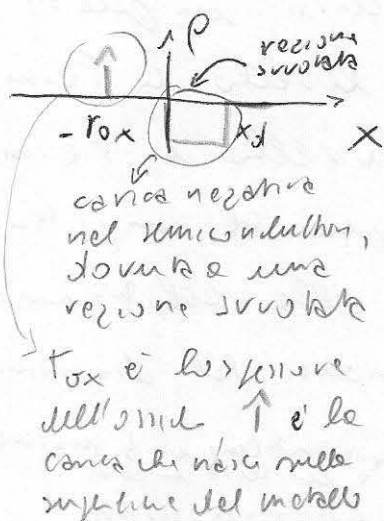 ρ
regione
svuotata
- tox
xd
x
carica negativa
nel semiconduttore,
dovuta a una
regione svuotata
tox è lo spessore
dell'ossido ↑ è la
carica che nasce sulla
superficie del metallo